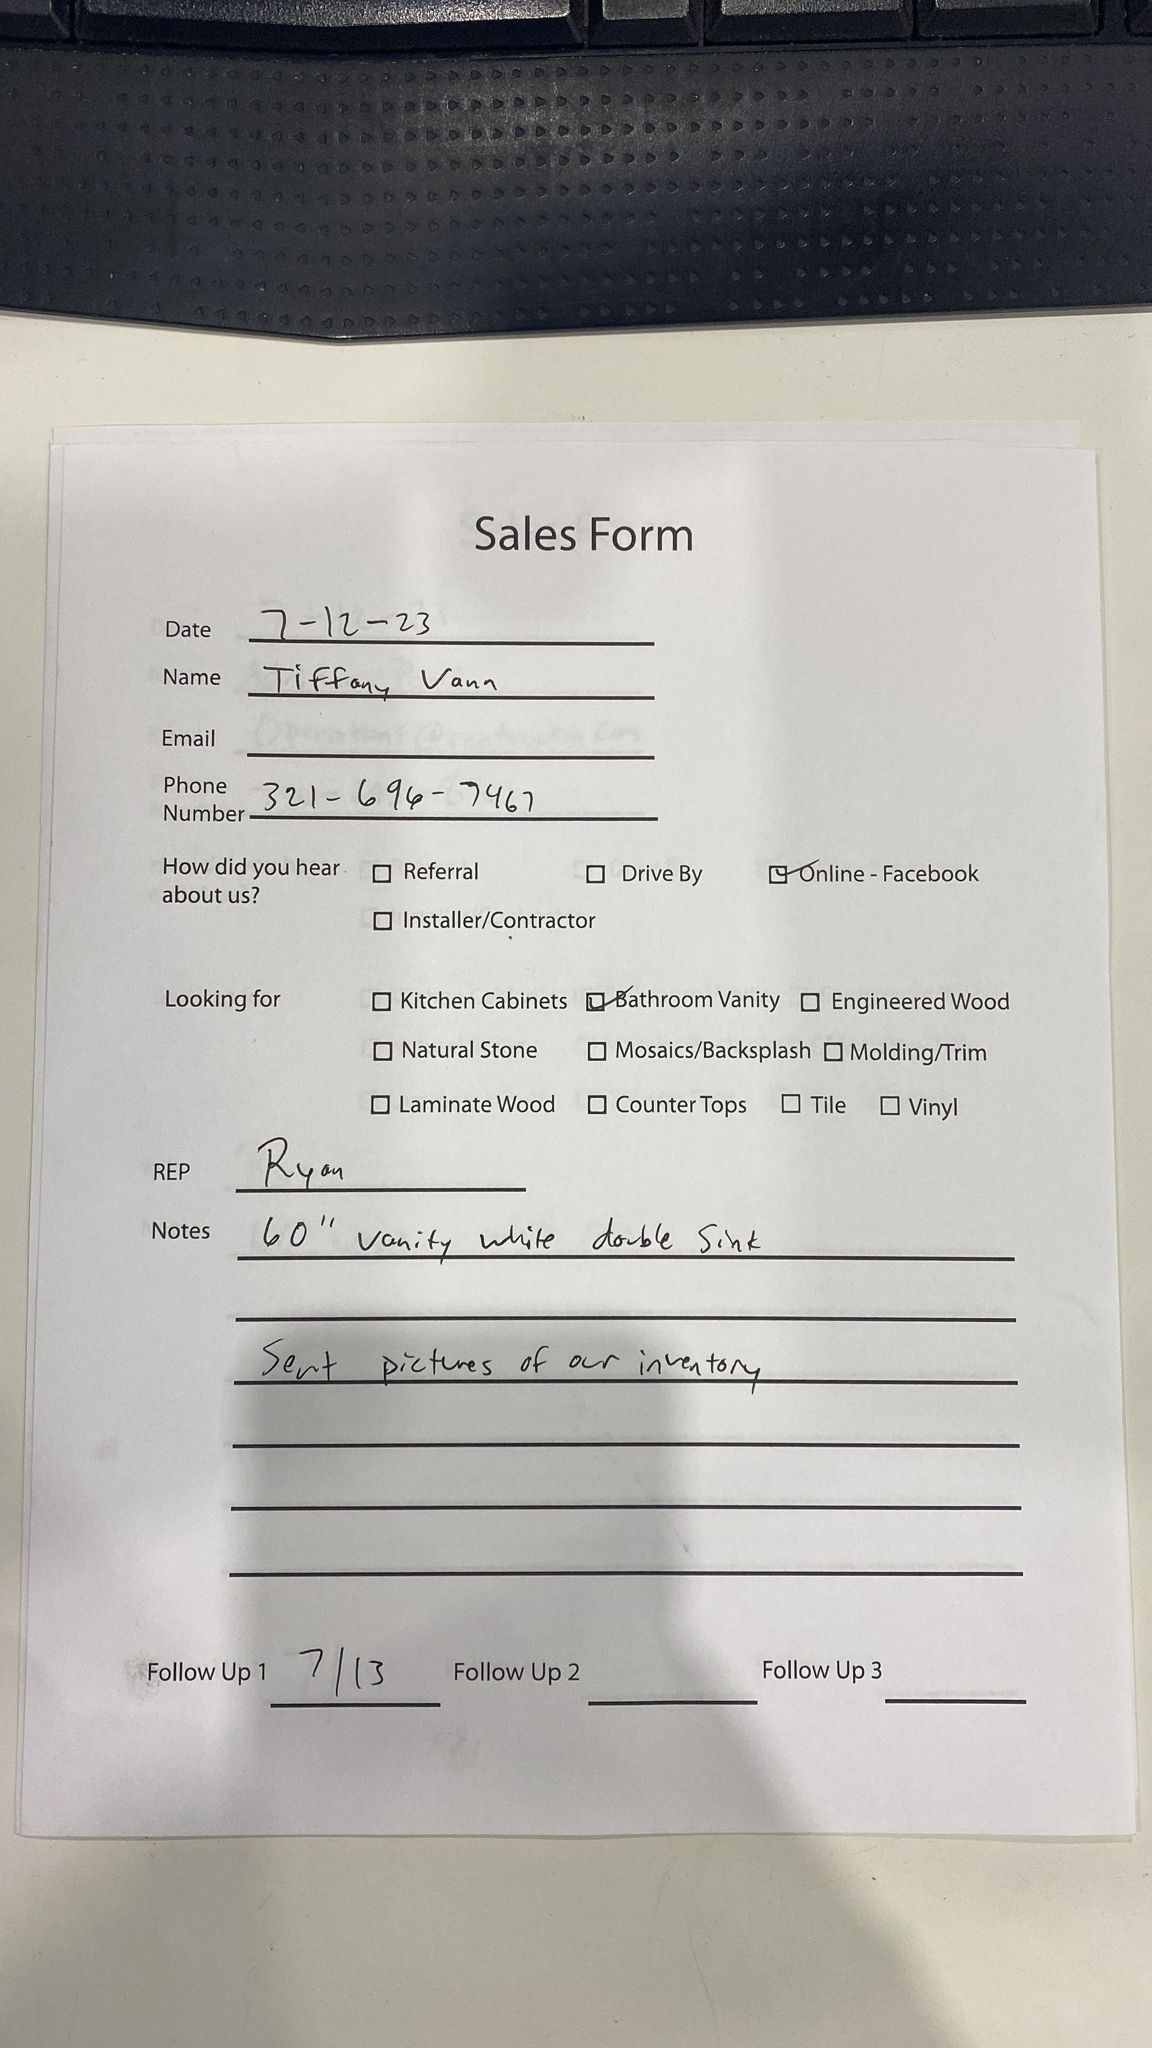 Sales Form
Date 7-12-23
Name Tiffany Vann
Email
Phone
Number 321-696-7467
How did you hear about us? Referral Drive By Online - Facebook
Installer/Contractor
Looking for Kitchen Cabinets Bathroom Vanity Engineered Wood
Natural Stone Mosaics/Backsplash Molding/Trim
Laminate Wood Counter Tops Tile Vinyl
REP Ryan
Notes 60" vanity white double sink
Sent pictures of our inventory
Follow Up 1 7/13 Follow Up 2 Follow Up 3